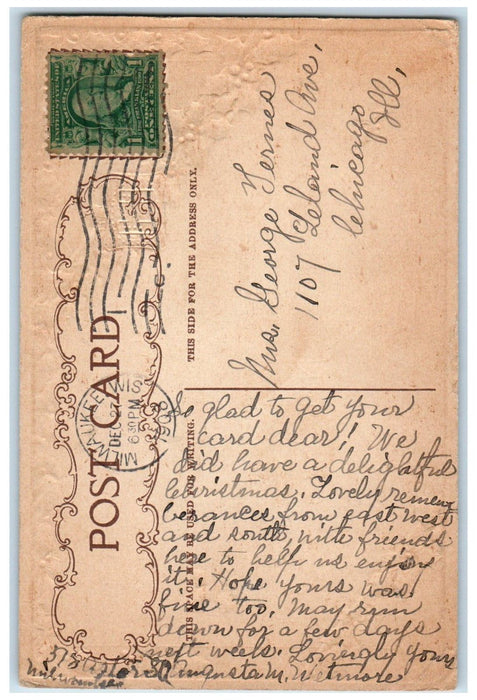 POST CARD
THIS SIDE FOR THE ADDRESS ONLY.
THIS SPACE MAY BE USED FOR WRITING.
MILWAUKEE, WIS
DEC 27
630 PM
1908
Mrs. George Ternes
1107 Leland Ave,
Chicago
Ill,
So glad to get your
card dear! We
did have a delightful
Christmas. Lovely remem-
berances from east west
and south, with friends
here to help us enjoy
it. Hope yours was
fine too. May run
down for a few days
next week. Lovingly yours
Augusta M. Wetmore
Milwaukee